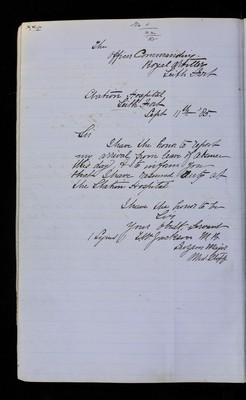 The
Officer Commanding
Royal Artillery
Leith Fort
Station Hospital,
Leith Fort
Sept 11th '85.
Sir
I have the honor to report
my arrival from leave of absence
this day, & to inform you
that I have resumed duty at
the Station Hospital
I have the honor to be
Sir
Your Obedt Servant
(Signed) Jackson M.B.
Surgeon Major
Med Staff